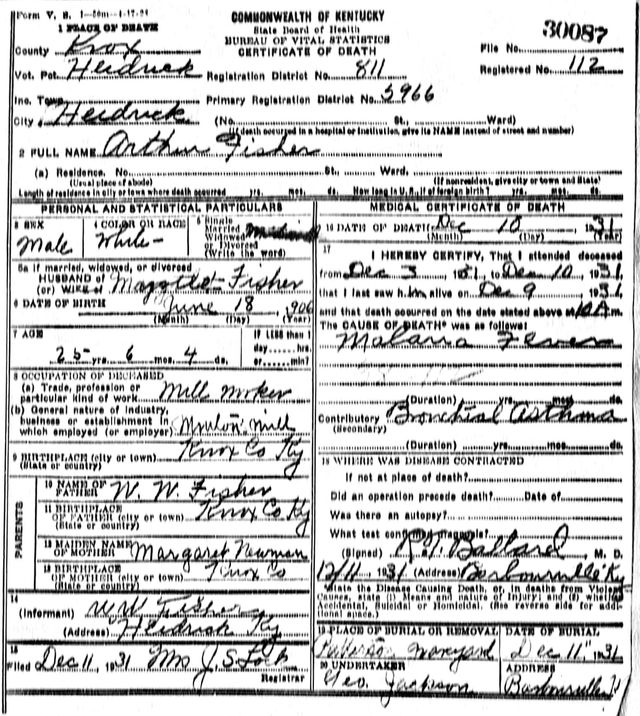 Form V. S. 1-50m-4-17-28
1 PLACE OF DEATH
COMMONWEALTH OF KENTUCKY
State Board of Health
BUREAU OF VITAL STATISTICS
CERTIFICATE OF DEATH
30087
File No.
County Knox
Registered No. 112
Vot. Pct. Heidrick Registration District No. 811
Inc. Town Primary Registration District No. 5966
City Heidrick (No. St., Ward)
(If death occurred in a hospital or institution, give its NAME instead of street and number)
2 FULL NAME Arthur Fisher
(a) Residence. No. St., Ward.
(Usual place of abode) (If nonresident, give city or town and State)
Length of residence in city or town where death occurred yrs. mos. ds. How long in U. S., if of foreign birth? yrs. mos. ds.
PERSONAL AND STATISTICAL PARTICULARS
3 SEX
Male
4 COLOR OR RACE
White
5 Single
Married
Widowed
or Divorced
(Write the word)
Married
5a If married, widowed, or divorced
HUSBAND OF
(or) WIFE OF Fisher
6 DATE OF BIRTH June 18, 906
(Month) (Day) (Year)
7 AGE
25 yrs. 6 mos. 4 ds.
If LESS than 1
day hrs.
or min?
8 OCCUPATION OF DECEASED
(a) Trade, profession or
particular kind of work Mill worker
(b) General nature of industry,
business or establishment in
which employed (or employer) mill
9 BIRTHPLACE (city or town) Knox Co Ky
(State or country)
PARENTS
10 NAME OF
FATHER W. W. Fisher
11 BIRTHPLACE
OF FATHER (city or town) Knox Co Ky
(State or country)
12 MAIDEN NAME
OF MOTHER Margaret Newman
13 BIRTHPLACE
OF MOTHER (city or town) Knox Co
(State or country)
14
(Informant) W. W. Fisher
(Address) Heidrick Ky
15
Filed Dec 11, 1931 Mrs J. S. Lock
Registrar
MEDICAL CERTIFICATE OF DEATH
16 DATE OF DEATH Dec 10 1931
(Month) (Day) (Year)
17
I HEREBY CERTIFY, That I attended deceased
from Dec 3, 1931, to Dec 10, 1931
that I last saw him alive on Dec 9 1931,
and that death occurred on the date stated above at 10 A m.
The CAUSE OF DEATH* was as follows:
Malaria Fever
(Duration) yrs. mos. ds.
Contributory Bronchial Asthma
(Secondary)
(Duration) yrs. mos. ds.
18 WHERE WAS DISEASE CONTRACTED
If not at place of death?
Did an operation precede death? Date of
Was there an autopsy?
What test confirmed diagnosis?
(Signed) Ballard, M. D.
12/11, 1931 (Address) Barbourville Ky
*State the Disease Causing Death, or, in deaths from Violent
Causes, state (1) Means and nature of Injury; and (2) whether
Accidental, Suicidal or Homicidal. (See reverse side for additional space.)
19 PLACE OF BURIAL OR REMOVAL
DATE OF BURIAL
Dec 11, 1931
20 UNDERTAKER
Geo. Jackson
ADDRESS
Barbourville Ky